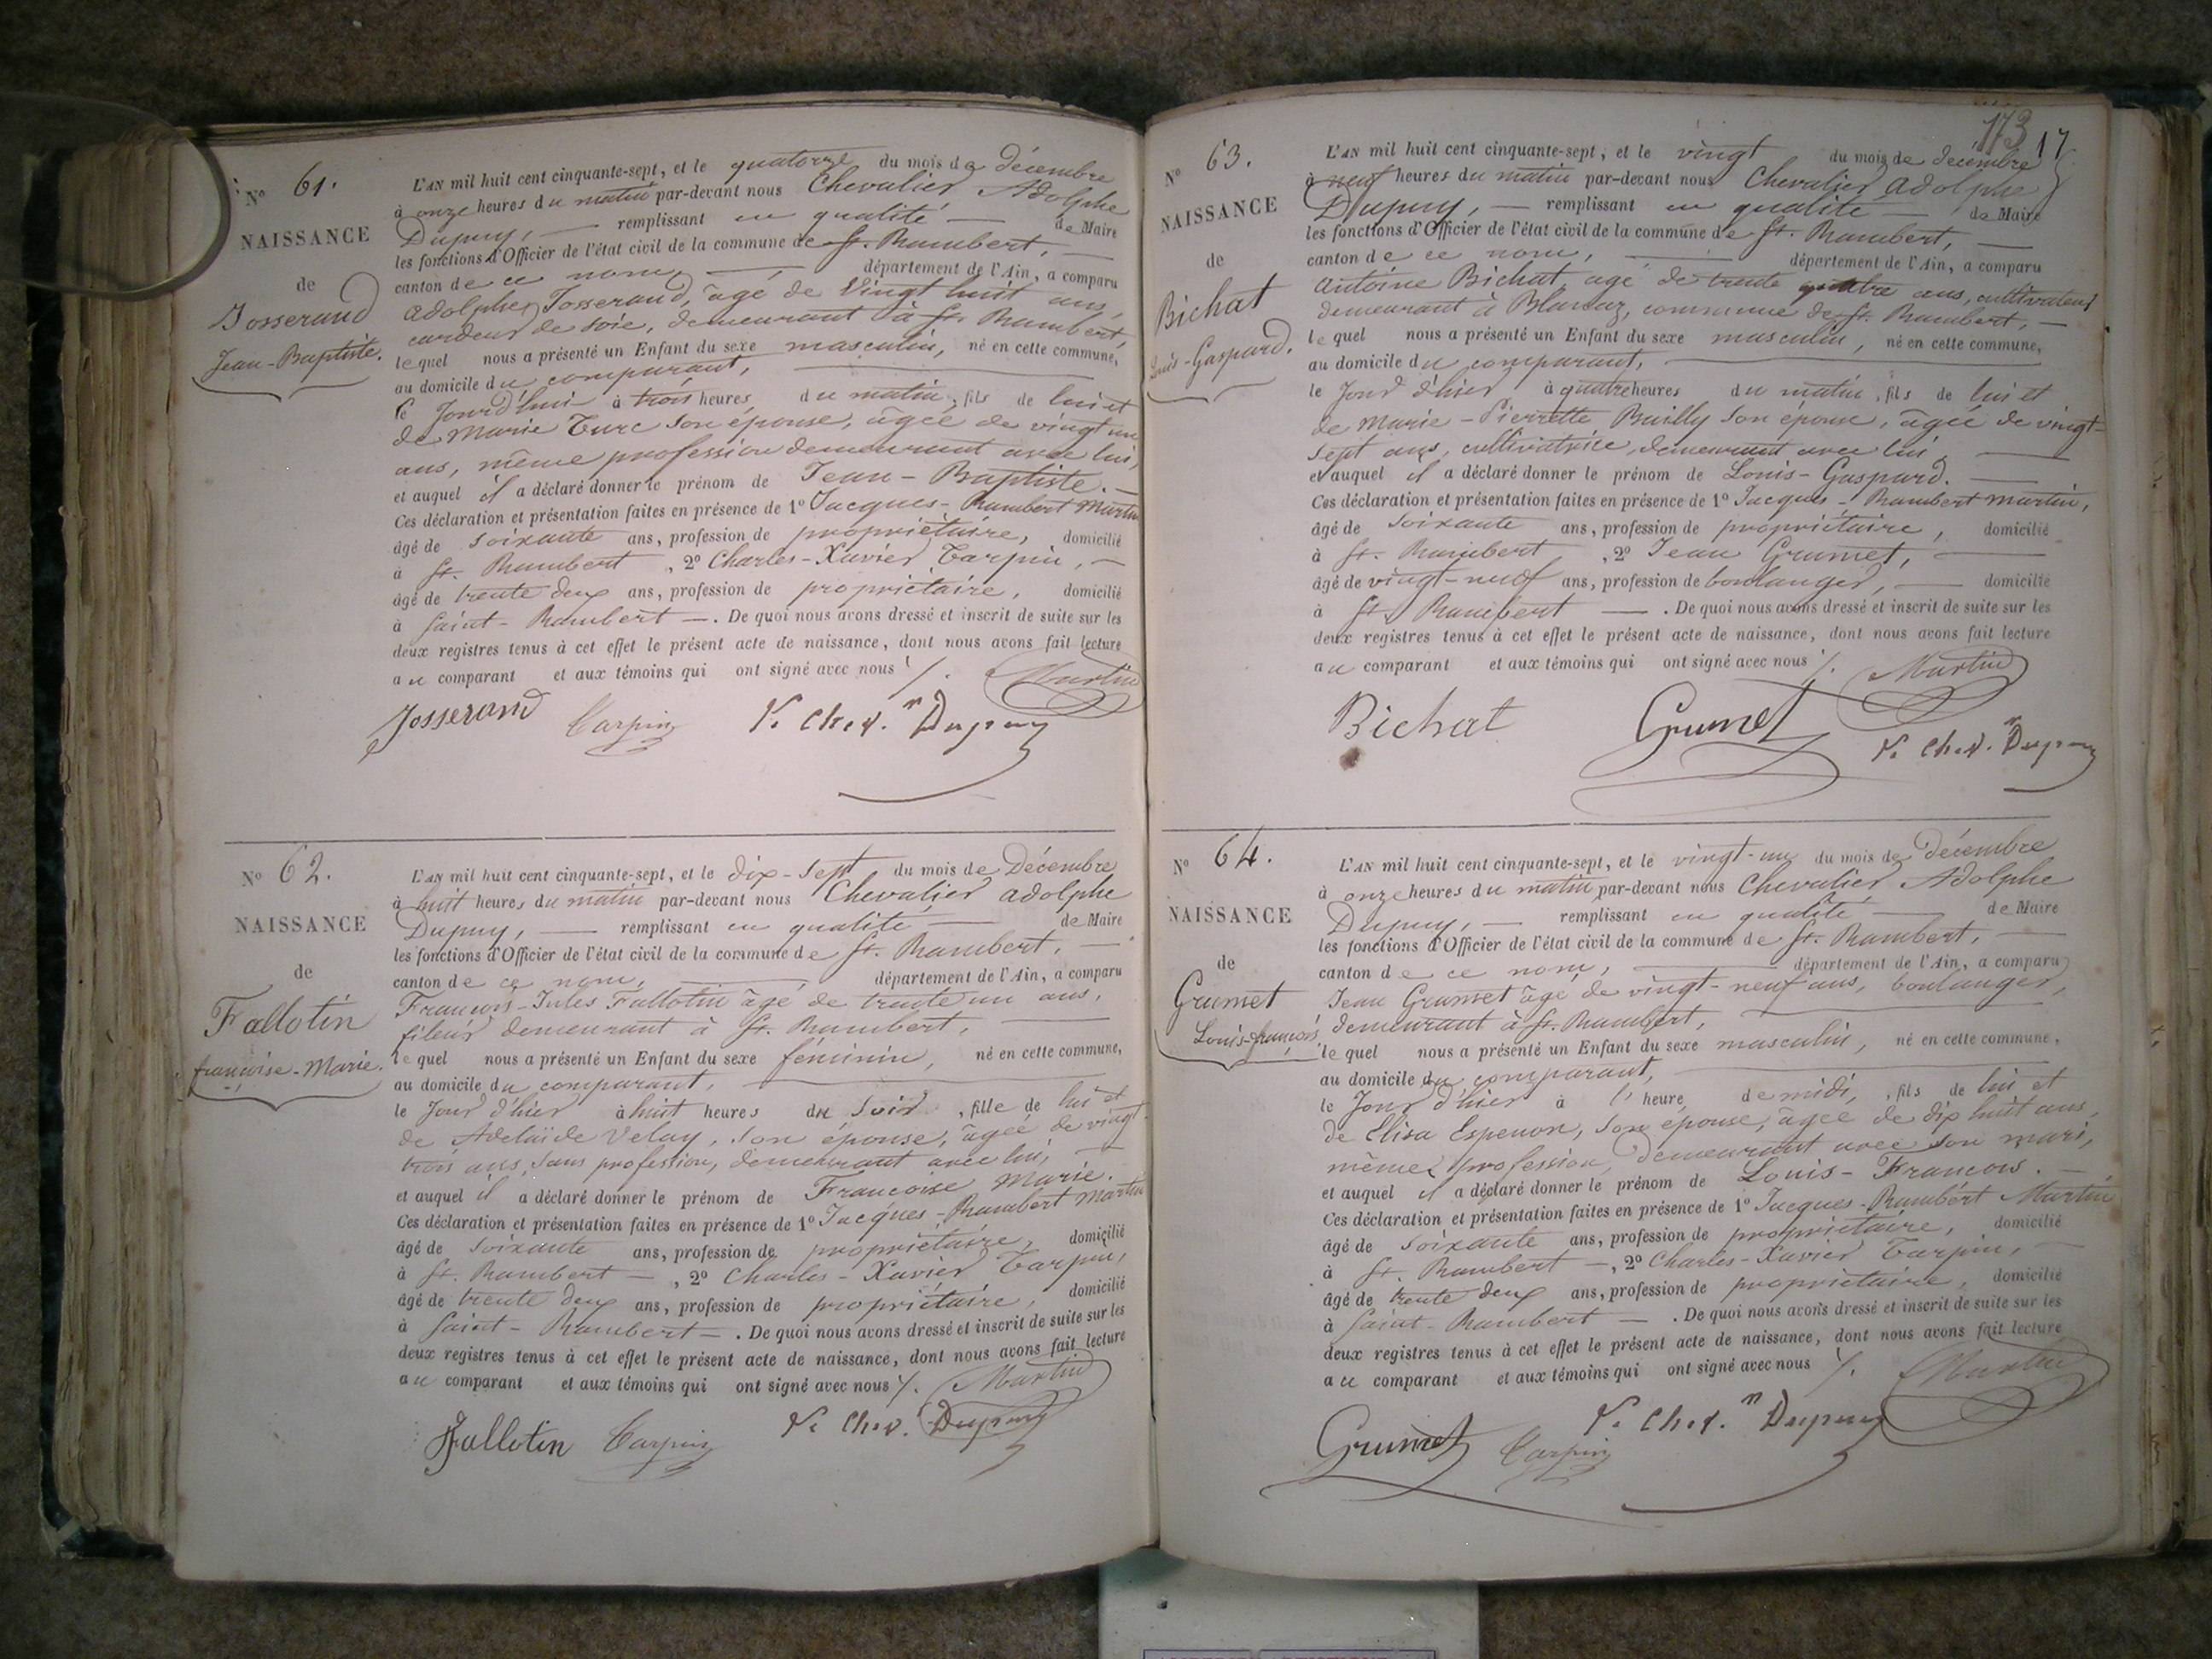 No 61.
NAISSANCE
de
Josserand
Jean-Baptiste.
L'AN mil huit cent cinquante-sept, et le quatorze du mois de décembre
à onze heures du matin par-devant nous Chevalier Adolphe
Dupuy, — remplissant en qualité — de Maire
les fonctions d'Officier de l'état civil de la commune de St. Rambert, —
canton de ce nom, — département de l'Ain, a comparu
Adolphe Josserand, âgé de Vingt huit ans,
cardeur de soie, demeurant à St. Rambert,
lequel nous a présenté un Enfant du sexe masculin, né en cette commune,
au domicile du comparant, —
le Jourd'hui à trois heures du matin, fils de lui et
de Marie Turc son épouse, âgée de vingt un
ans, même profession demeurant avec lui,
et auquel il a déclaré donner le prénom de Jean-Baptiste. —
Ces déclaration et présentation faites en présence de 1º Jacques-Rambert Martin
âgé de soixante ans, profession de propriétaire, domicilié
à St. Rambert , 2º Charles-Xavier Tarpin, —
âgé de trente deux ans, profession de propriétaire, domicilié
à Saint-Rambert —. De quoi nous avons dressé et inscrit de suite sur les
deux registres tenus à cet effet le présent acte de naissance, dont nous avons fait lecture
au comparant et aux témoins qui ont signé avec nous ./.
Martin
Josserand Tarpin Chev. n Dupuy
No 62.
NAISSANCE
de
Fallotin
françoise-Marie.
L'AN mil huit cent cinquante-sept, et le dix-sept du mois de Décembre
à huit heures du matin par-devant nous Chevalier Adolphe
Dupuy, — remplissant en qualité — de Maire
les fonctions d'Officier de l'état civil de la commune de St. Rambert, —
canton de ce nom, — département de l'Ain, a comparu
François-Jules Fallotin âgé de trente un ans,
fileur demeurant à St. Rambert, —
lequel nous a présenté un Enfant du sexe féminin, né en cette commune,
au domicile du comparant, —
le Jour d'hier à huit heures du soir, fille de lui et
de Adelaïde Velay, son épouse, âgée de vingt
trois ans, sans profession, demeurant avec lui, —
et auquel il a déclaré donner le prénom de Françoise Marie.
Ces déclaration et présentation faites en présence de 1º Jacques-Rambert Martin
âgé de soixante ans, profession de propriétaire, domicilié
à St. Rambert —, 2º Charles-Xavier Tarpin,
âgé de trente deux ans, profession de propriétaire, domicilié
à Saint-Rambert —. De quoi nous avons dressé et inscrit de suite sur les
deux registres tenus à cet effet le présent acte de naissance, dont nous avons fait lecture
au comparant et aux témoins qui ont signé avec nous ./.
Martin
Fallotin Tarpin Chev. Dupuy
173 17
No 63.
NAISSANCE
de
Bichat
Louis-Gaspard.
L'AN mil huit cent cinquante-sept, et le vingt du mois de décembre
à neuf heures du matin par-devant nous Chevalier Adolphe
Dupuy, — remplissant en qualité — de Maire
les fonctions d'Officier de l'état civil de la commune de St. Rambert, —
canton de ce nom, — département de l'Ain, a comparu
Antoine Bichat, âgé de trente quatre ans, cultivateur
demeurant à Blanaz, commune de St. Rambert, —
lequel nous a présenté un Enfant du sexe masculin, né en cette commune,
au domicile du comparant, —
le Jour d'hier à quatre heures du matin, fils de lui et
de Marie-Pierrette Bailly son épouse, âgée de vingt-
sept ans, cultivatrice, demeurant avec lui, —
et auquel il a déclaré donner le prénom de Louis-Gaspard. —
Ces déclaration et présentation faites en présence de 1º Jacques-Rambert Martin,
âgé de soixante ans, profession de propriétaire, domicilié
à St. Rambert , 2º Jean Grumet, —
âgé de vingt-neuf ans, profession de boulanger, — domicilié
à St. Rambert —. De quoi nous avons dressé et inscrit de suite sur les
deux registres tenus à cet effet le présent acte de naissance, dont nous avons fait lecture
au comparant et aux témoins qui ont signé avec nous ./.
Martin
Bichat Grumet Chev. n Dupuy
No 64.
NAISSANCE
de
Grumet
Louis-françois
L'AN mil huit cent cinquante-sept, et le vingt-un du mois de décembre
à onze heures du matin par-devant nous Chevalier Adolphe
Dupuy, — remplissant en qualité — de Maire
les fonctions d'Officier de l'état civil de la commune de St. Rambert, —
canton de ce nom, — département de l'Ain, a comparu
Jean Grumet âgé de vingt-neuf ans, boulanger,
demeurant à St. Rambert, —
lequel nous a présenté un Enfant du sexe masculin, né en cette commune,
au domicile du comparant, —
le Jour d'hier à l'heure de midi, fils de lui et
de Elisa Espenon, son épouse, âgée de dix huit ans,
même profession, demeurant avec son mari,
et auquel il a déclaré donner le prénom de Louis-François. —
Ces déclaration et présentation faites en présence de 1º Jacques-Rambert Martin
âgé de soixante ans, profession de propriétaire, domicilié
à St. Rambert —, 2º Charles-Xavier Tarpin, —
âgé de trente deux ans, profession de propriétaire, domicilié
à Saint-Rambert —. De quoi nous avons dressé et inscrit de suite sur les
deux registres tenus à cet effet le présent acte de naissance, dont nous avons fait lecture
au comparant et aux témoins qui ont signé avec nous ./.
Martin
Grumet Tarpin Chev. n Dupuy